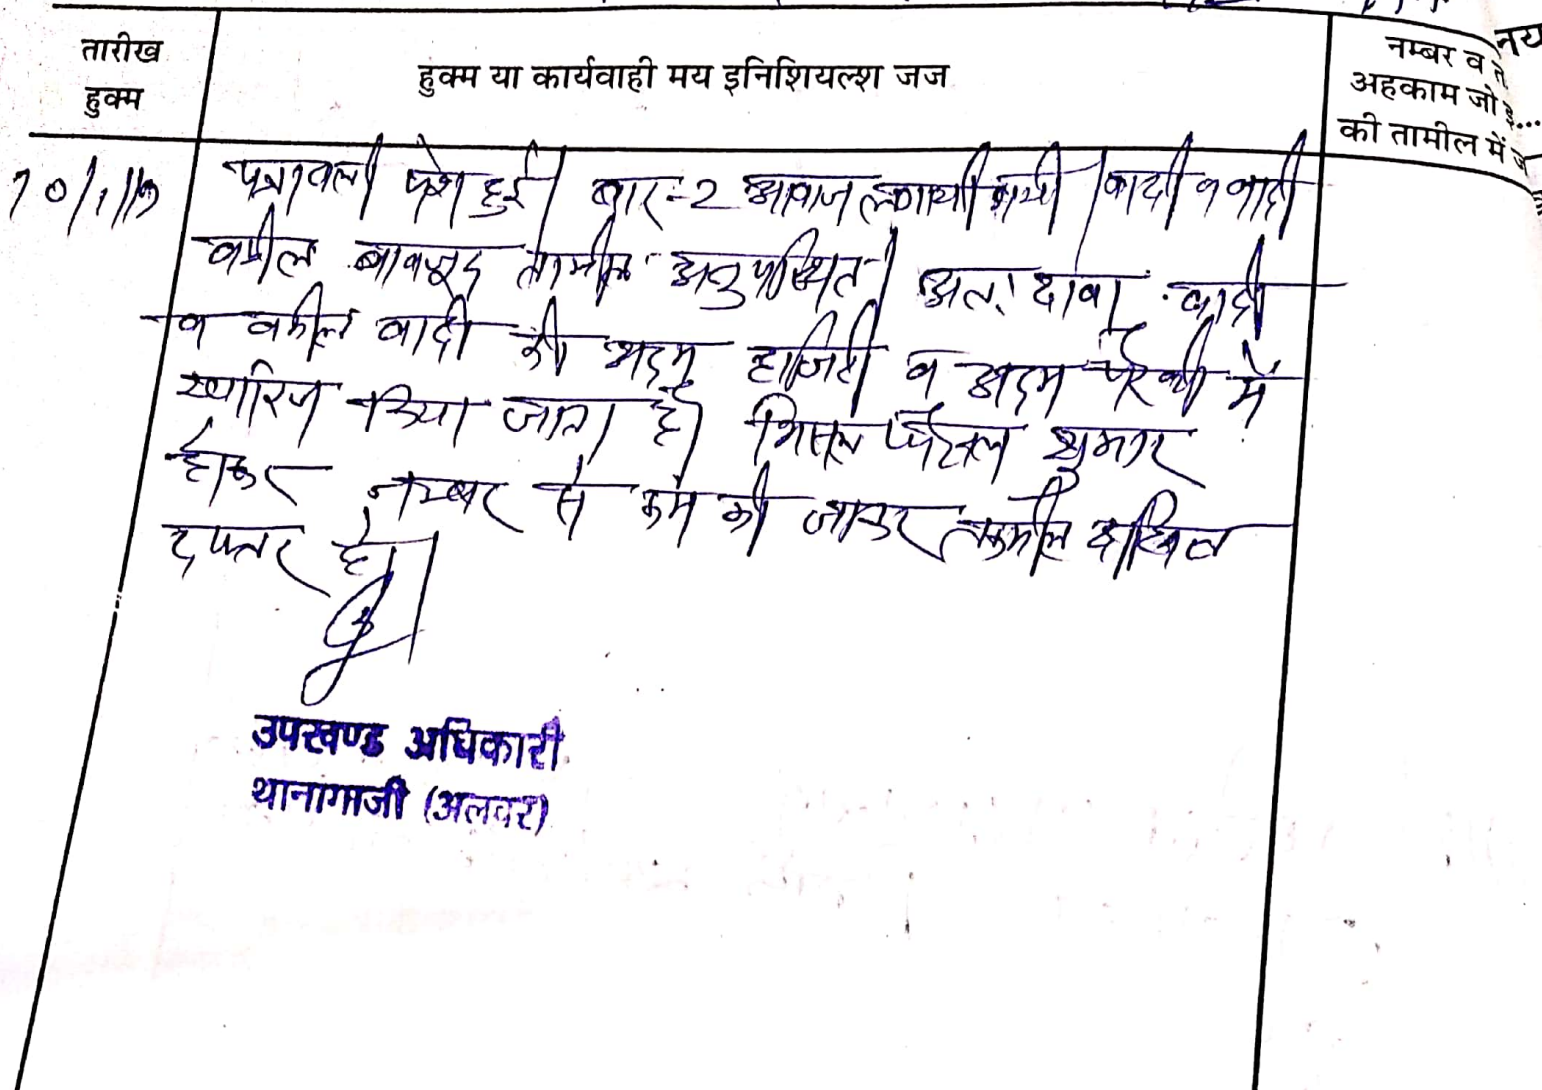 तारीख
हुक्म
हुक्म या कार्यवाही मय इनिशियल्श जज
नम्बर व
अहकाम जो
की तामील में
पत्रावली पेश हुई। बार-2 आवाज लगायी गयी। वादी व वादी
वकील बावजूद तामील अनुपस्थित। अतः दावा वादी
व वकील वादी की अदम हाजिरी व अदम पैरवी में
खारिज किया जाता है। मिसल फैसल शुमार
होकर नम्बर से कम की जाकर तकमील दाखिल
दफ्तर हो।
उपखण्ड अधिकारी
थानागाजी (अलवर)